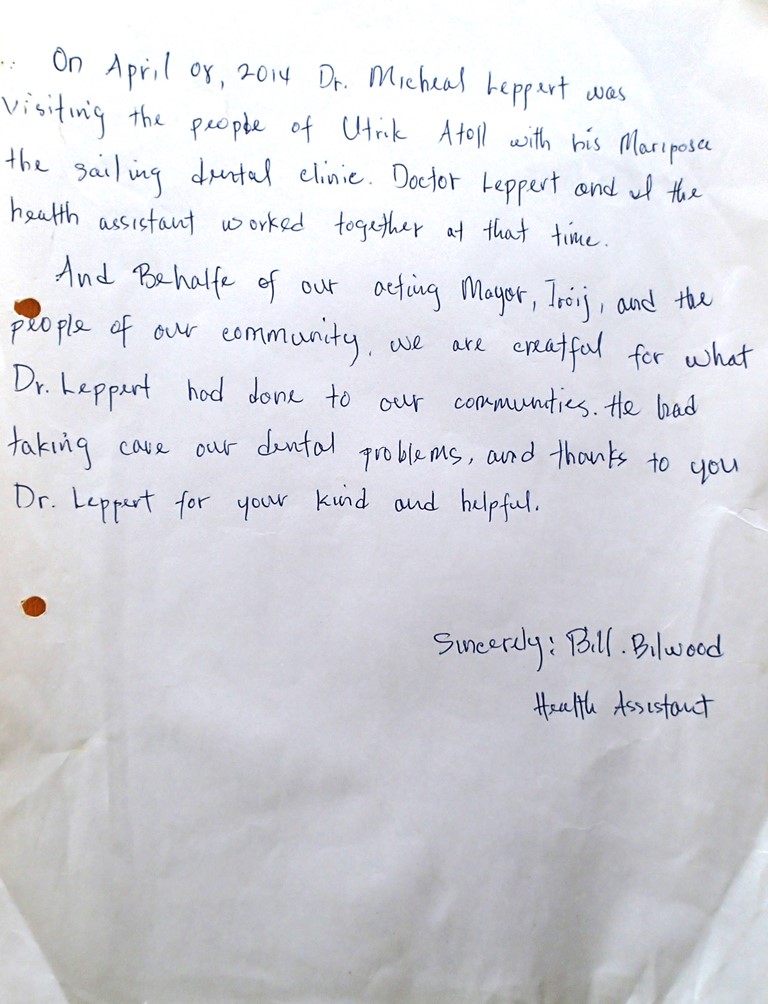 On April 08, 2014 Dr. Micheal Leppert was
visiting the people of Utrik Atoll with his Mariposa
the sailing dental clinic. Doctor Leppert and I the
health assistant worked together at that time.
And Behalfe of our acting Mayor, Iroij, and the
people of our community, we are creatful for what
Dr. Leppert had done to our communities. He had
taking care our dental problems, and thanks to you
Dr. Leppert for your kind and helpful.
Sincerely: Bill. Bilwood
Health Assistant